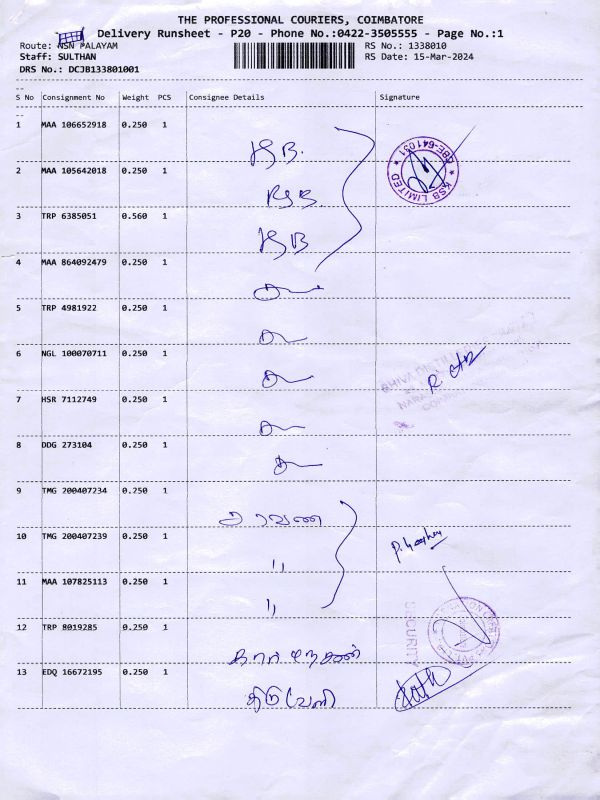 THE PROFESSIONAL COURIERS, COIMBATORE
Delivery Runsheet - P20 - Phone No.:0422-3505555 - Page No.:1
Route: NSN PALAYAM RS No.: 1338010
Staff: SULTHAN RS Date: 15-Mar-2024
DRS No.: DCJB133801001
S No Consignment No Weight PCS Consignee Details Signature
1 MAA 106652918 0.250 1 KSB.
2 MAA 105642018 0.250 1 KSB.
3 TRP 6385051 0.560 1 KSB
KSB LIMITED * CBE-641031 *
4 MAA 864092479 0.250 1
5 TRP 4981922 0.250 1
6 NGL 100070711 0.250 1
7 HSR 7112749 0.250 1
8 DDG 273104 0.250 1
9 TMG 200407234 0.250 1 சரவண
10 TMG 200407239 0.250 1 "
11 MAA 107825113 0.250 1 "
12 TRP 8019285 0.250 1
SECURITY
13 EDQ 16672195 0.250 1